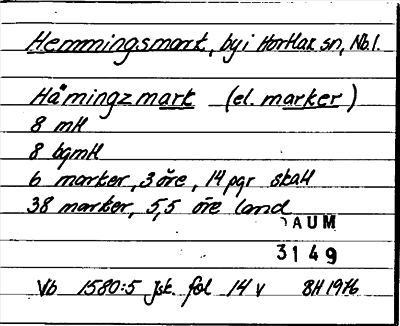 Hemmingsmark, by i Hortlax sn, Nb.l.
Håmingzmark (el. marker)
8 mtl
8 bgmtl
6 marker, 3 öre, 14 pgr skatt
38 marker, 5,5 öre land
DAUM
3149
Vb 1580:5 Jsk. fol 14 v BH 1976